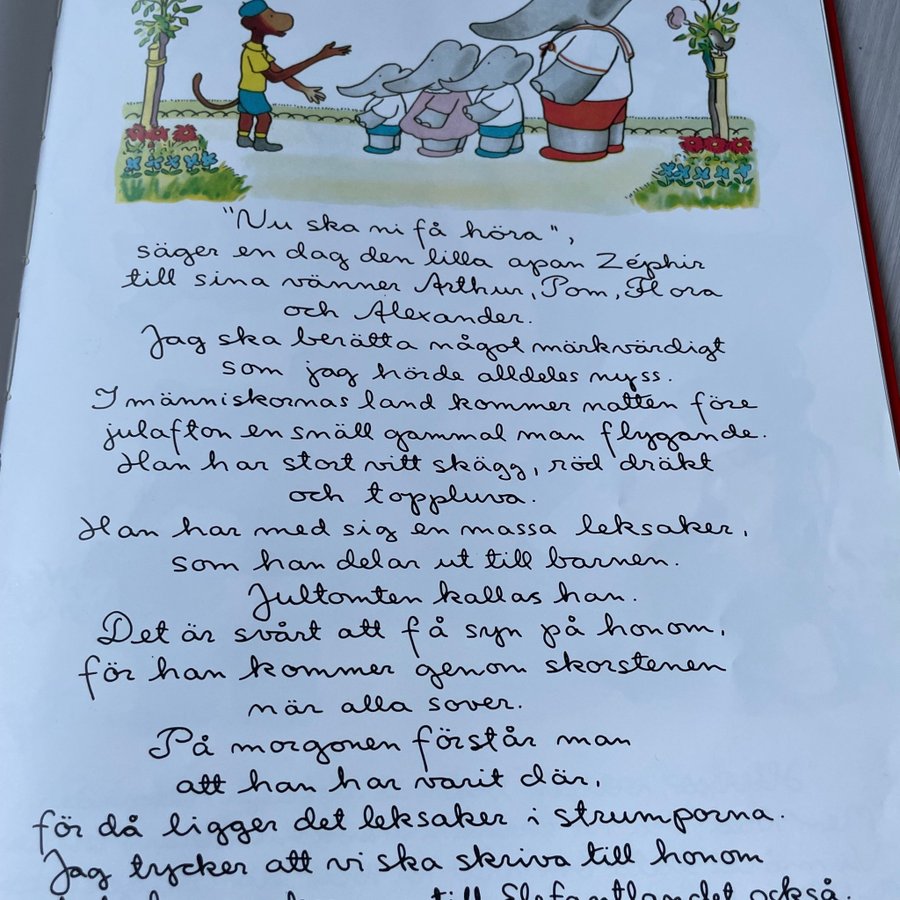 "Nu ska ni få höra",
säger en dag den lilla apan Zéphir
till sina vänner Arthur, Pom, Flora
och Alexander.
Jag ska berätta något märkvärdigt
som jag hörde alldeles nyss.
I människornas land kommer natten före
julafton en snäll gammal man flygande.
Han har stort vitt skägg, röd dräkt
och toppluva.
Han har med sig en massa leksaker,
som han delar ut till barnen.
Jultomten kallas han.
Det är svårt att få syn på honom,
för han kommer genom skorstenen
när alla sover.
På morgonen förstår man
att han har varit där,
för då ligger det leksaker i strumporna.
Jag tycker att vi ska skriva till honom
till Elefantlandet också.